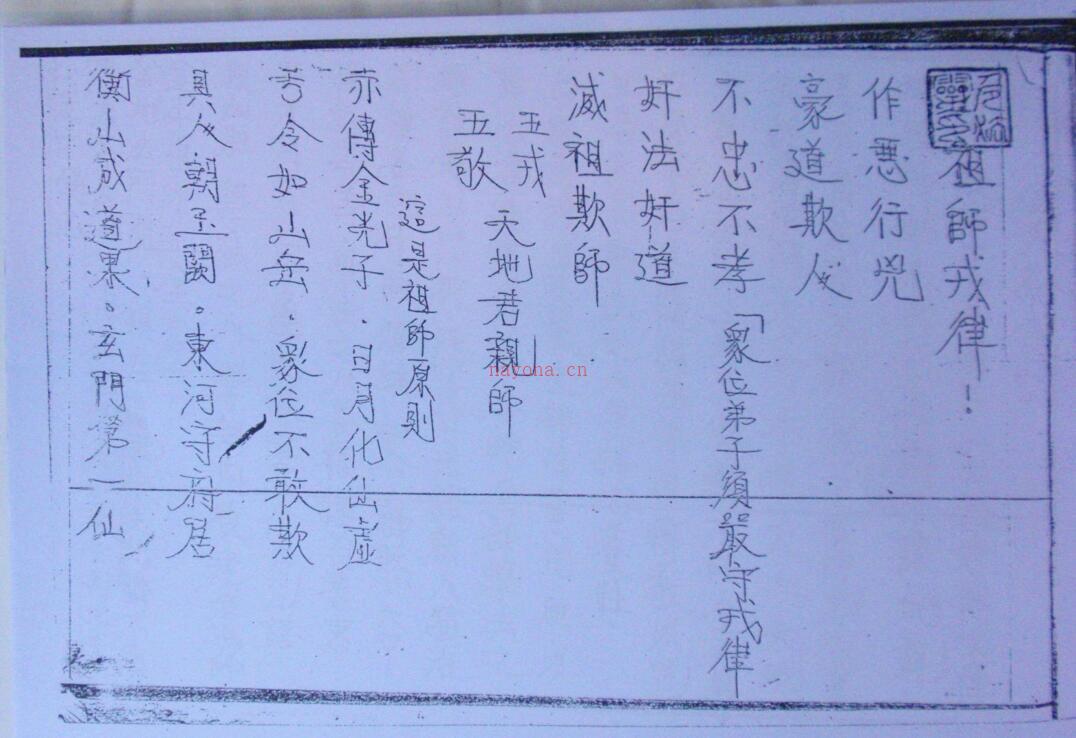 祖師戎律！
作悪行兇
豪道欺人
不忠不孝「眾位弟子須嚴守戎律
奸法奸道
滅祖欺師
五戎
五敬
天地君親師
這是祖師原則
亦傳金光子．日月化仙虛
吉令如山岳．眾位不敢欺
具人朝玉闕。東河守府居
衡山成道果。玄門第一仙
nayona.cn